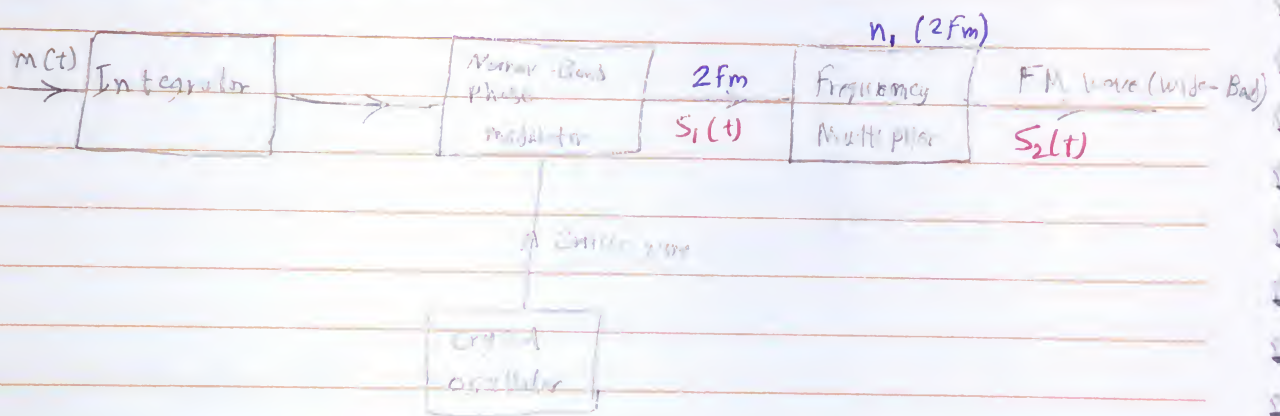 n, (2fm)
m(t)
Integrator
Narrow-Band
phase
modulator
2fm
S₁(t)
Frequency
Multiplier
FM wave (wide-Bad)
S₂(t)
wave
crystal
oscillator